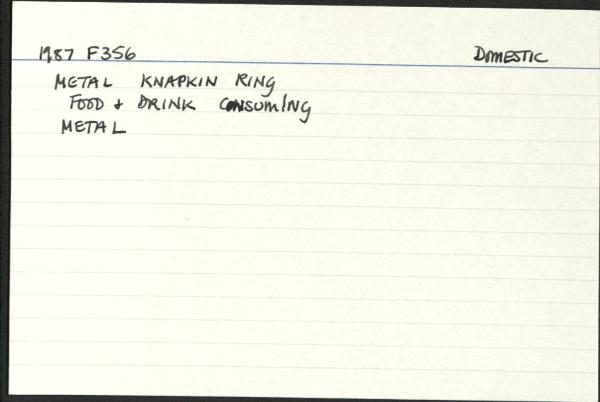 1987 F356 DOMESTIC
METAL KNAPKIN RING
FOOD & DRINK CONSUMING
METAL